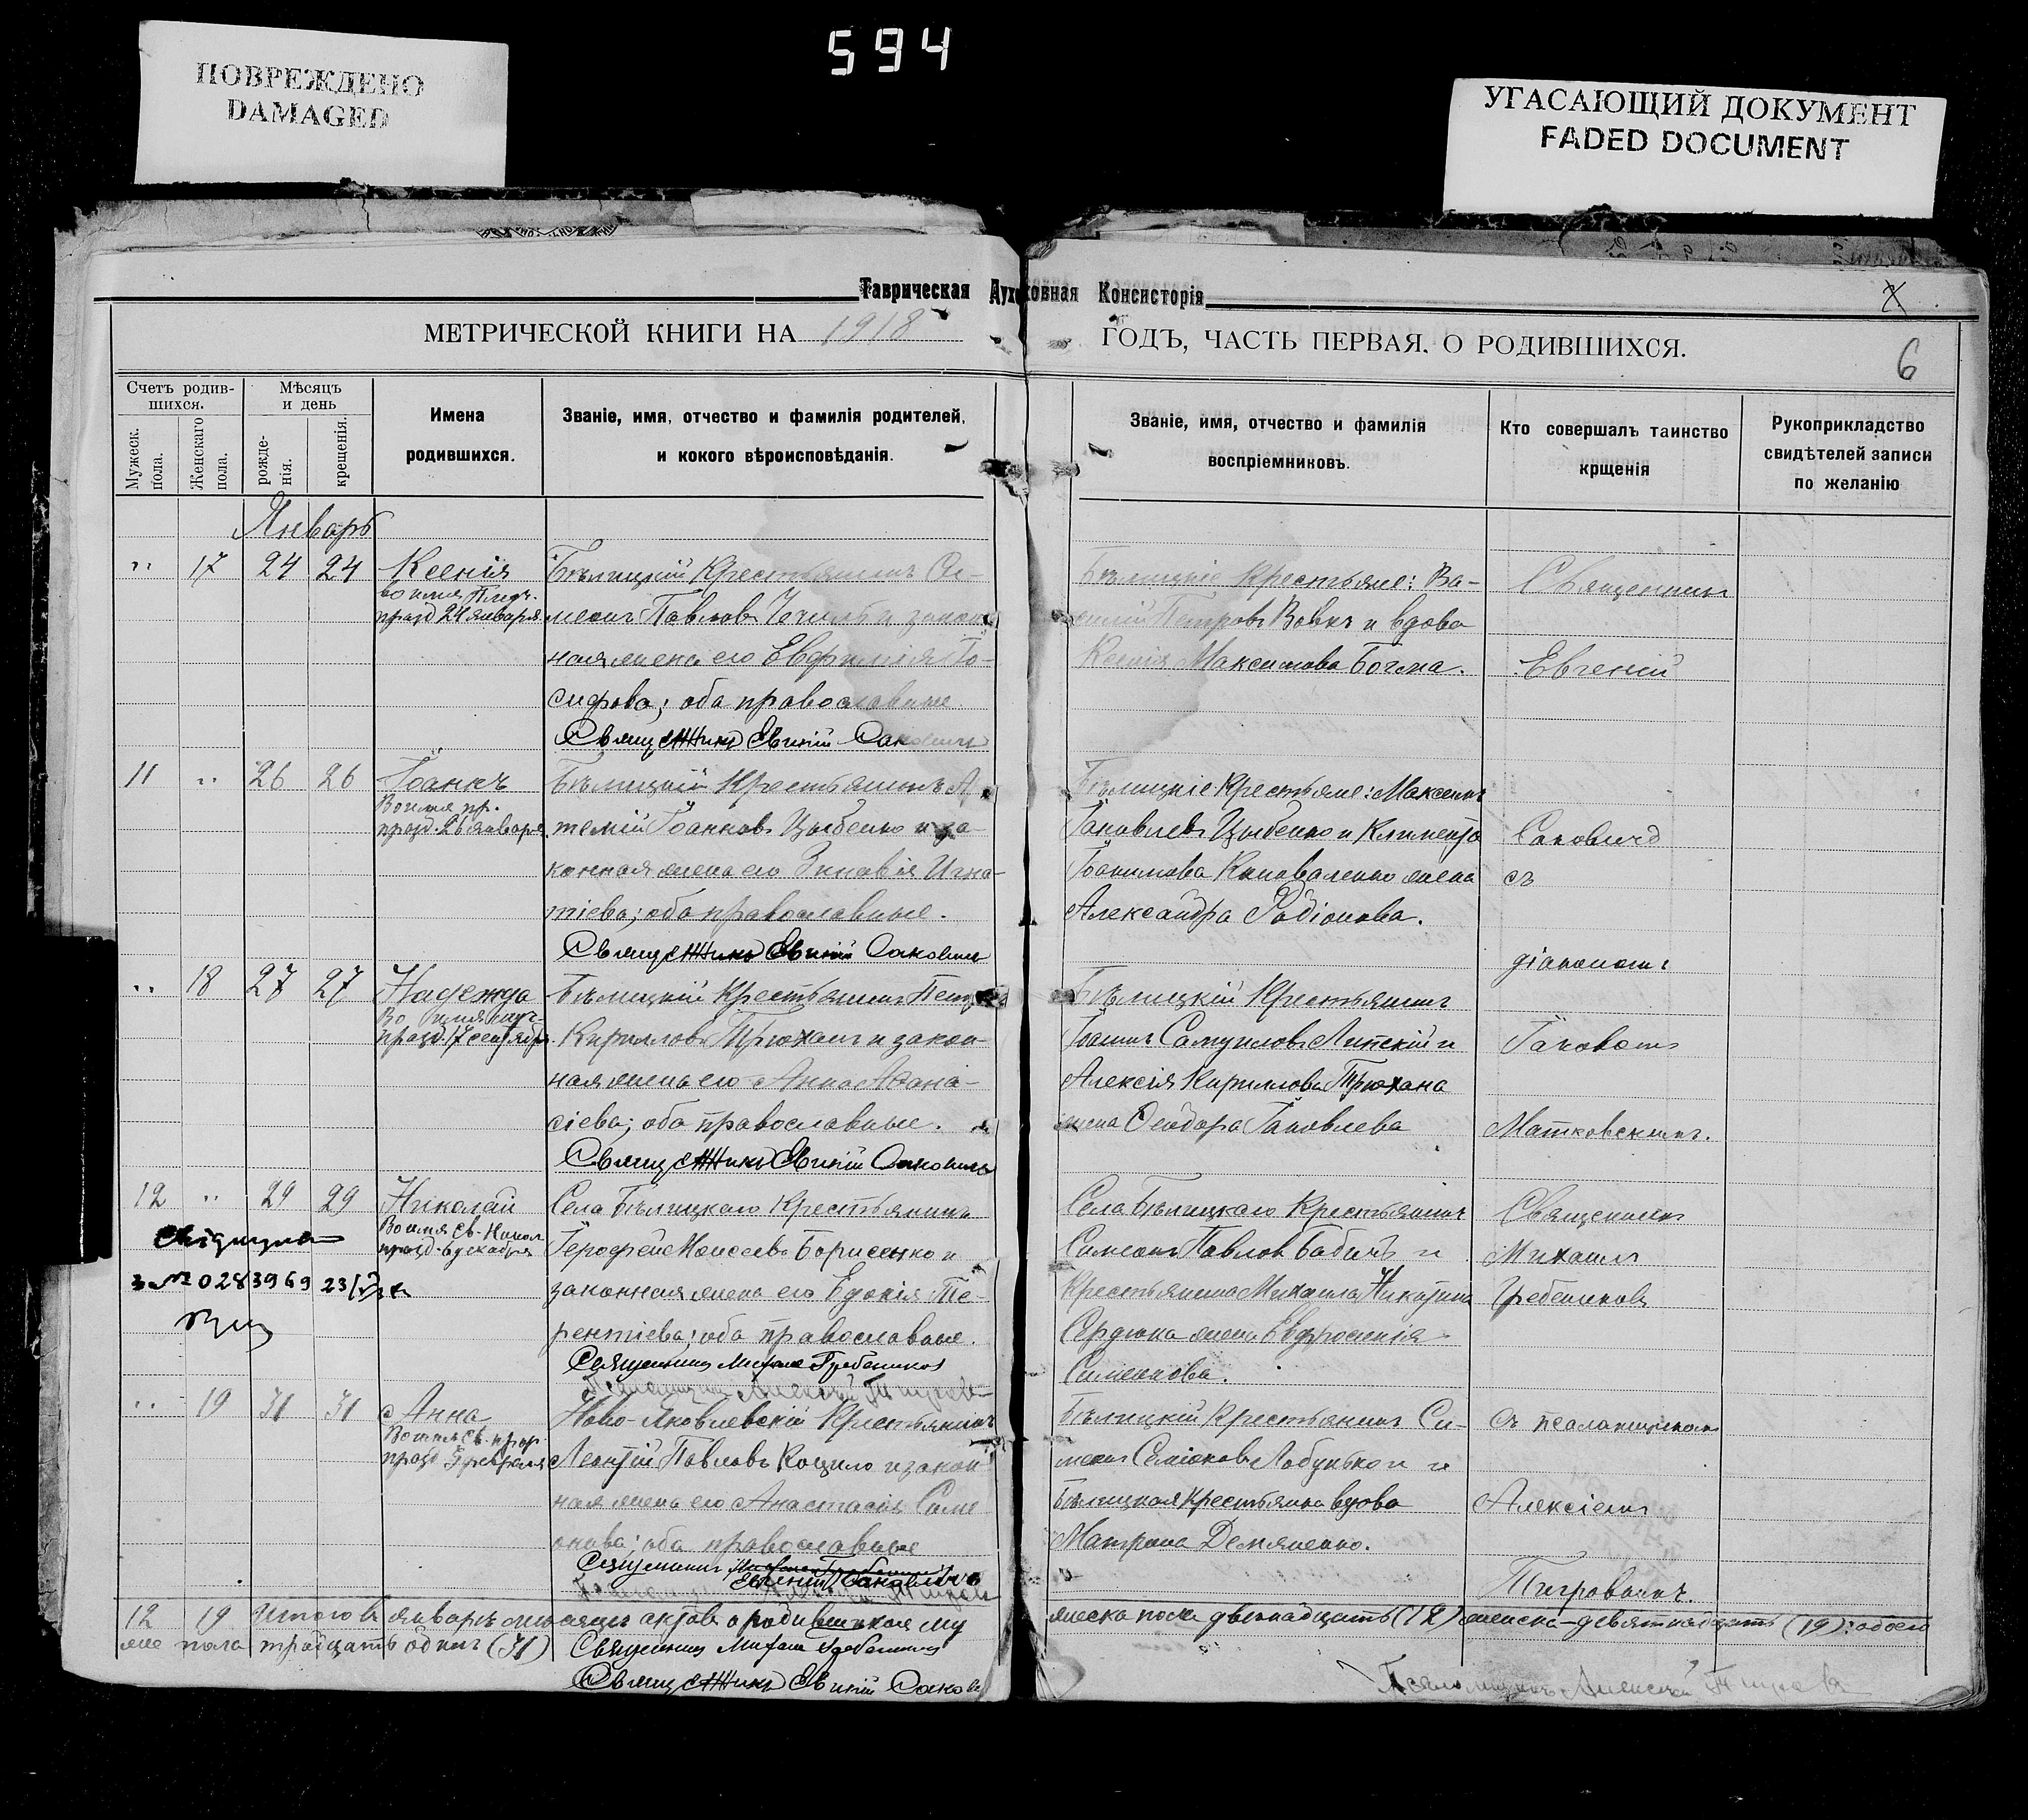 594
ПОВРЕЖДЕНО
DAMAGED
УГАСАЮЩИЙ ДОКУМЕНТ
FADED DOCUMENT
Таврическая Духовная Консисторія
МЕТРИЧЕСКОЙ КНИГИ НА 1918 ГОДЪ, ЧАСТЬ ПЕРВАЯ, О РОДИВШИХСЯ.
6
Счетъ родив-
шихся.
Мужеск.
пола.
Женскаго
пола.
Мѣсяцъ
и день
рожде-
нія.
крещенія.
Имена
родившихся.
Званіе, имя, отчество и фамилія родителей,
и кокого вѣроисповѣданія.
Званіе, имя, отчество и фамилія
воспріемниковъ.
Кто совершалъ таинство
крщенія
Рукоприкладство
свидѣтелей записи
по желанію
Январь
" 17 24 24 Ксенія
празд 24 января
Бѣлицкій Крестьянинъ Си-
меонъ Павловъ и закон
ная жена его Евфимія Іо-
сифова; оба православные
Священникъ Евгеній Саковичъ
Бѣлицкіе Крестьяне: Ва-
силій Петровъ Вовкъ и вдова
Ксенія Максимова Богма.
Священникъ
Евгеній
11 " 26 26 Іоаннъ
Во имя пр.
празд. 26 января
Бѣлицкій Крестьянинъ А
темій Іоанновъ Цыбенко и за-
конная жена его Зиновія Игна-
тіева; оба православные.
Священникъ Евгеній Саковичъ
Бѣлицкіе Крестьяне: Максимъ
Іаковлевъ Цыбенко и Климента
Іоакимова Коноваленко жена
Александра Родіонова.
Саковичъ
съ
діакономъ
" 18 27 27 Надежда
Во имя муч.
празд. 17 сентября
Бѣлицкій Крестьянинъ Петръ
Кирилловъ Трюханъ и закон-
ная жена его Анна Аѳана-
сіева; оба православные.
Священникъ Евгеній Саковичъ
Бѣлицкій Крестьянинъ
Іоаннъ Самуиловъ Липскій и
Алексія Кириллова Трюхана
жена Ѳеодора Іаковлева
Іаковомъ
Матковскимъ.
12 " 29 29 Николай
Во имя Св. Никол
празд. 6 декабря
№ 0283969 23/
Села Бѣлицкаго Крестьянинъ
Іерофей Моисеевъ Борисенко и
законная жена его Евдокія Те-
рентіева; оба православные.
Священникъ Михаилъ Гребенниковъ
Псаломщикъ Алексій Тигровъ
Села Бѣлицкаго Крестьянинъ
Симеонъ Павловъ Бабичъ и
Крестьянина Михаила Никитина
Сердюка жена Евфросинія
Симеонова.
Священникъ
Михаилъ
Гребенниковъ
" 19 31 31 Анна
Во имя Св. прор.
празд 3 февраля
Ново-Яковлевскій Крестьянинъ
Леонтій Павловъ Коцило и закон
ная жена его Анастасія Симе
онова; оба православные
Священникъ
Евгеній Саковичъ
Бѣлицкій Крестьянинъ Си-
меонъ Симеоновъ Лобунько и
Бѣлицкая Крестьянка вдова
Матрона Демяненко.
съ псаломщикомъ
Алексіемъ
Тигровымъ.
12 19 Итого въ январѣ мѣсяцѣ актовъ о родившихся му
жеска пола двенадцать (12) женска-девятнадцать (19): обоего
же пола тридцать одинъ (31)
Священникъ Михаилъ Гребенниковъ
Священникъ Евгеній Саковичъ
Псаломщикъ Алексій Тигровъ